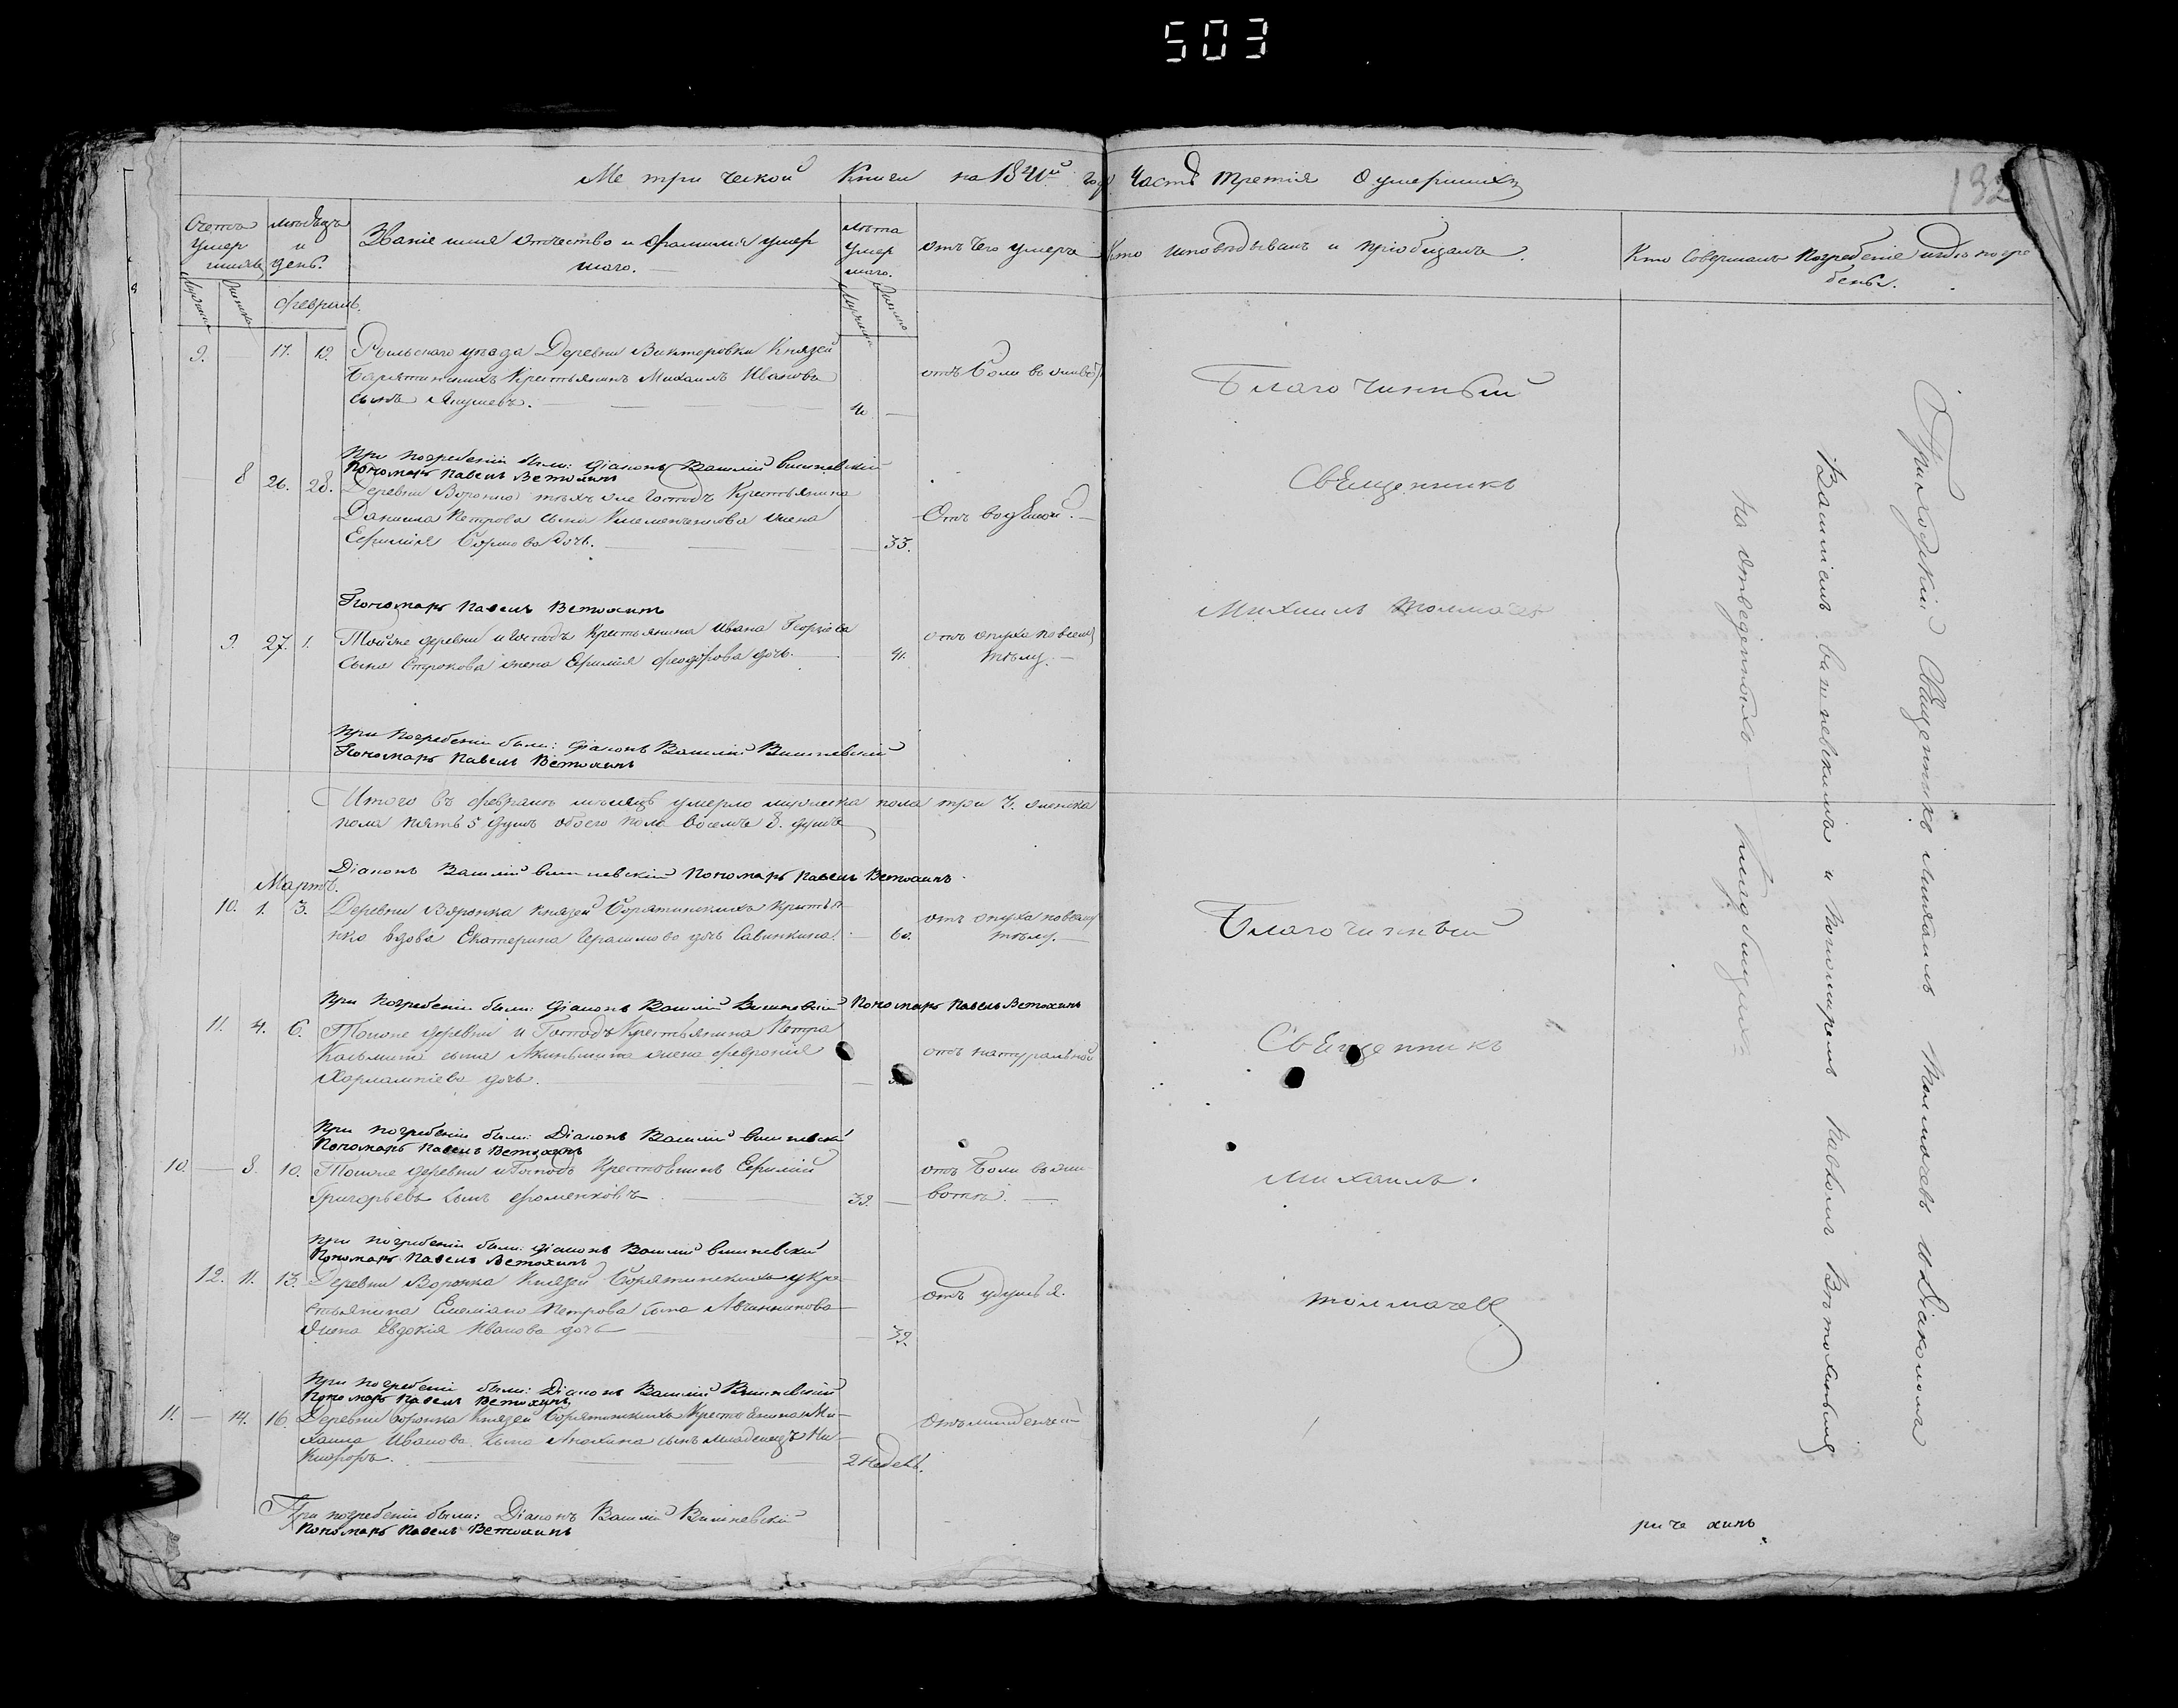 503
Метрической Книги на 1841й годъ Часть третія О умершихъ
132
Счетъ умер шихъ
Мужеска
Женска
мѣсяцъ и день.
Званіе имя отчество и фамилія умер шаго.
лѣта умер шаго.
Мужеска
Женска
отъ чего умеръ
Кто исповѣдывалъ и пріобщалъ.
Кто Совершалъ погребеніе и гдѣ погре бены.
Февраль.
9. 17. 19. Рыльскаго уѣзда Деревни Викторовки Князей
Барятинскихъ Крестьянинъ Михаилъ Ивановъ
сынъ Якушевъ. 40. отъ Боли въ животѣ
При погребеніи были: Діаконъ Василій Вишневскій
Пономарь Павелъ Ветохинъ
8 26. 28. Деревни Воронка тѣхъ же Господъ Крестьянина
Даніила Петрова сына Клеменчикова жена
Ефимія дочь. 33. Отъ водяной.
Пономарь Павелъ Ветохинъ
9. 27. 1. Тойже деревни и Господъ Крестьянина Ивана Георгіева
сына Строкова жена Ефимія Феодорова дочь. 41. отъ опуха по всему тѣлу.
При погребеніи были: Діаконъ Василій Вишневскій
Пономарь Павелъ Ветохинъ
Итого въ Февралѣ мѣсяцѣ умерло мужеска пола три 3. женска
пола пять 5 душъ обоего пола восемь 8. душъ
Діаконъ Василій Вишневскій Пономарь Павелъ Ветохинъ
Мартъ.
10. 1. 3. Деревни Воронка Князей Борятинскихъ крестья
нка вдова Екатерина Герасимова дочь Савинкина. 60. отъ опуха по всему тѣлу.
При погребеніи были: Діаконъ Василій Вишневскій Пономарь Павелъ Ветохинъ
11. 4. 6. Тойже деревни и Господъ Крестьянина Петра
Козьмина сына жена Февронія
Харлампіева дочь. отъ натуральной
При погребеніи были: Діаконъ Василій Вишневскій
Пономарь Павелъ Ветохинъ
10. 8. 10. Тойже деревни и Господъ Крестьянинъ Ефимій
Григорьевъ сынъ Фоменковъ 39. отъ Боли въ жи вотѣ.
При погребеніи были: Діаконъ Василій Вишневскій
Пономарь Павелъ Ветохинъ
12. 11. 13. Деревни Воронка Князей Борятинскихъ у кре
стьянина Емеліана Петрова сына Авчинникова
жена Евдокія Иванова дочь 39. отъ удушья.
При погребеніи были: Діаконъ Василій Вишневскій
Пономарь Павелъ Ветохинъ
11. 14. 16. Деревни Воронка Князей Борятинскихъ Крестьянина Ми
хаила Иванова сына Анохина сынъ младенецъ Ни
кифоръ. 2 недѣль. Отъ младенческой
При погребеніи были: Діаконъ Василій Вишневскій
Пономарь Павелъ Ветохинъ
Благочинный
Священникъ
Михаилъ Толмачевъ
Благочинный
Священникъ
Михаилъ.
Толмачевъ
Приходскій Священникъ Михаилъ Толмачевъ и Діакономъ
Василіемъ Вишневскимъ и Пономаремъ Павломъ Ветохинымъ
на отведенномъ кладбищѣ